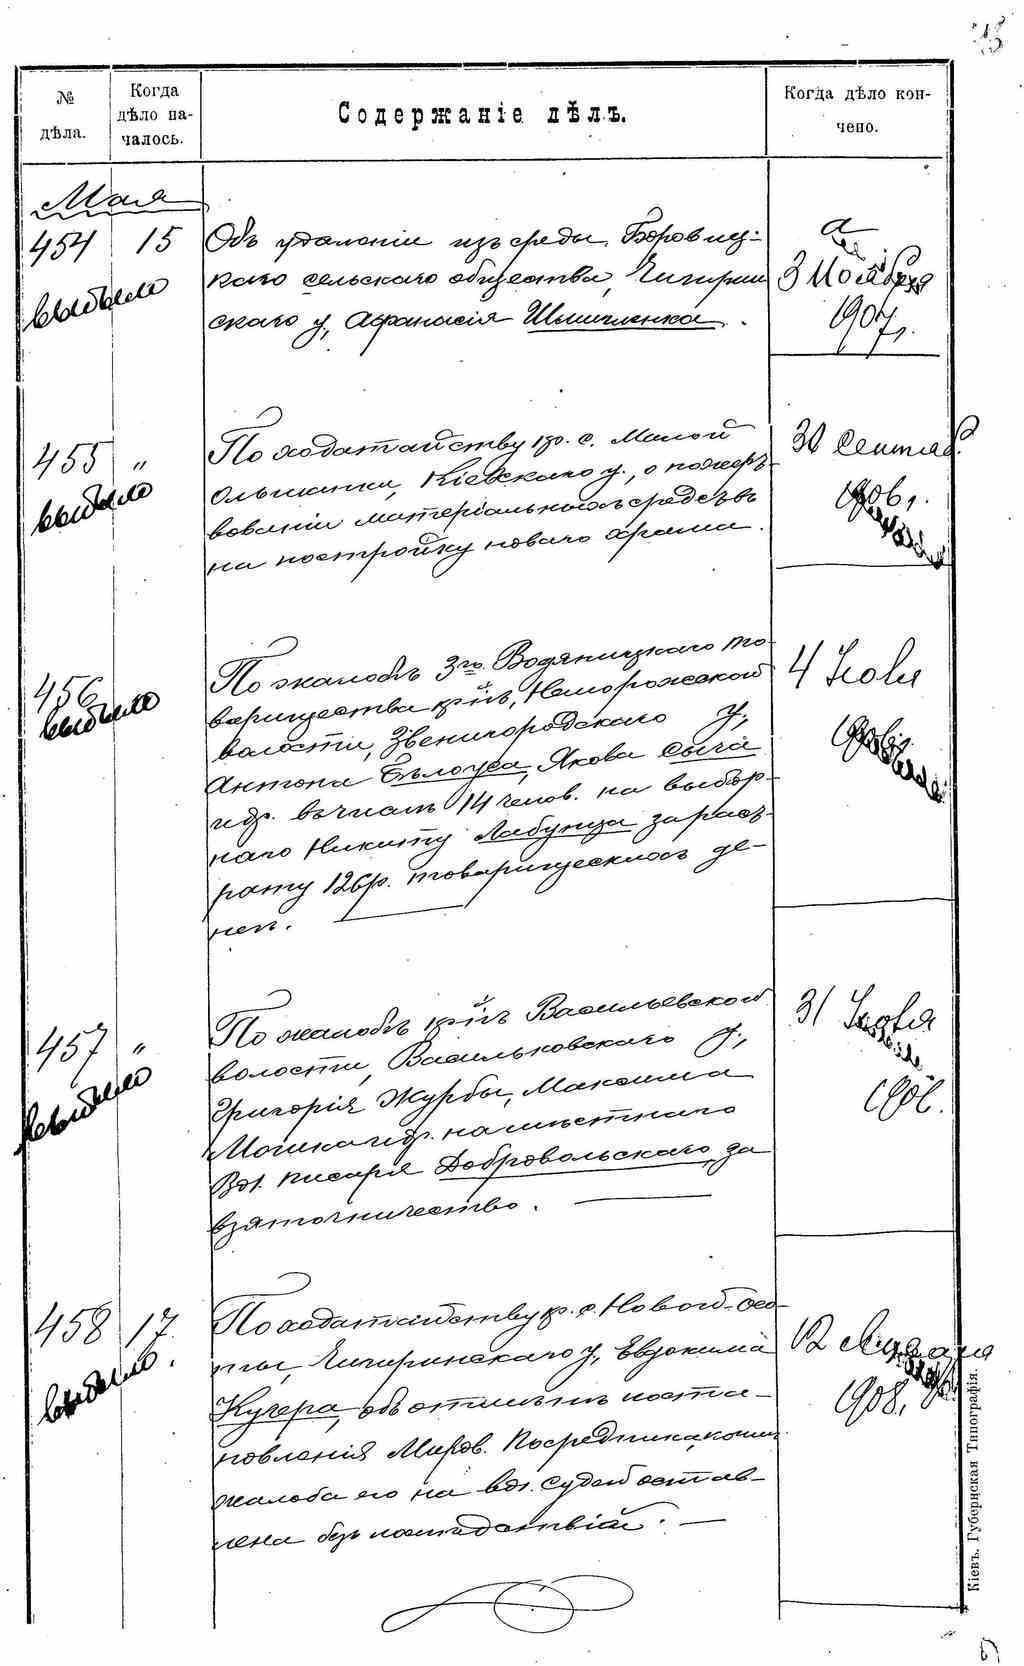 № дѣла.
Когда дѣло на-
чалось.
Содержаніе дѣлъ.
Когда дѣло кон-
чено.
Мая
454 15 Объ удаленіи изъ среды Боровиц-
каго сельскаго общества, Чигирин
скаго у, Афанасія
3 Ноября
1907 г.
выбыло
455 " По ходатайству кр. с. Малой
Ольшанки, Кіевскаго у., о пожерт-
вованіи матеріальныхъ средствъ
на постройку новаго храма.
30 Сентяб.
1906 г.
выбыло
456 По жалобѣ 3го Водяницкаго то-
варищества кр-нъ, Неморожской
волости, Звенигородскаго у,
Антона Бѣлоуса, Якова Сыча
и др. въ числѣ 14 челов. на выбор-
наго Никиту Лабунца за рас-
рату 126 р. товарищескихъ де-
негъ.
4 Іюля
1906
выбыло
457 " По жалобѣ кр-нъ Васильевской
волости, Васильковскаго у,
Григорія Журбы, Максима
и др. на мѣстнаго
Вол. писаря Добровольскаго, за
взяточничество.
31 Іюля
190
выбыло
458 17 По ходатайству кр. с. Новой-Осо-
ты, Чигиринскаго у, Евдокима
Кучера, объ отмѣнѣ поста-
новленія Миров. Посредника, коим
жалоба его на вол. судей остав-
лена безъ послѣдствій.
12
1908.
выбыло.
Кіевъ. Губернская Типографія.